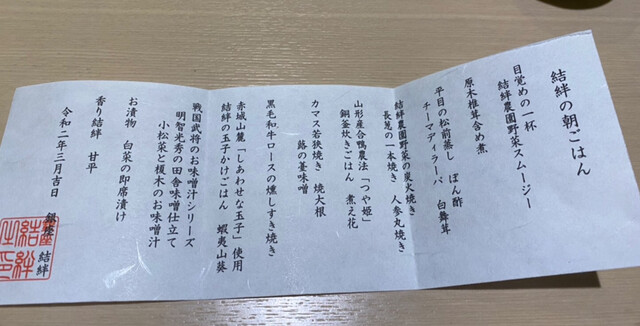 結絆の朝ごはん
目覚めの一杯
結絆農園野菜スムージー
原木椎茸含め煮
平目の松前蒸し ぽん酢
チーマディラーパ 白舞茸
結絆農園野菜の炭火焼き
長葱の一本焼き 人参丸焼き
山形産合鴨農法「つや姫」
銅釜炊きごはん 煮え花
カマス若狭焼き 焼大根
蕗の薹味噌
黒毛和牛ロースの燻しすき焼き
赤城山麓「しあわせな玉子」使用
結絆の玉子かけごはん 蝦夷山葵
戦国武将のお味噌汁シリーズ
明智光秀の田舎味噌仕立て
小松菜と榎木のお味噌汁
お漬物 白菜の即席漬け
香り結絆 甘平
令和二年三月吉日 銀座 結絆